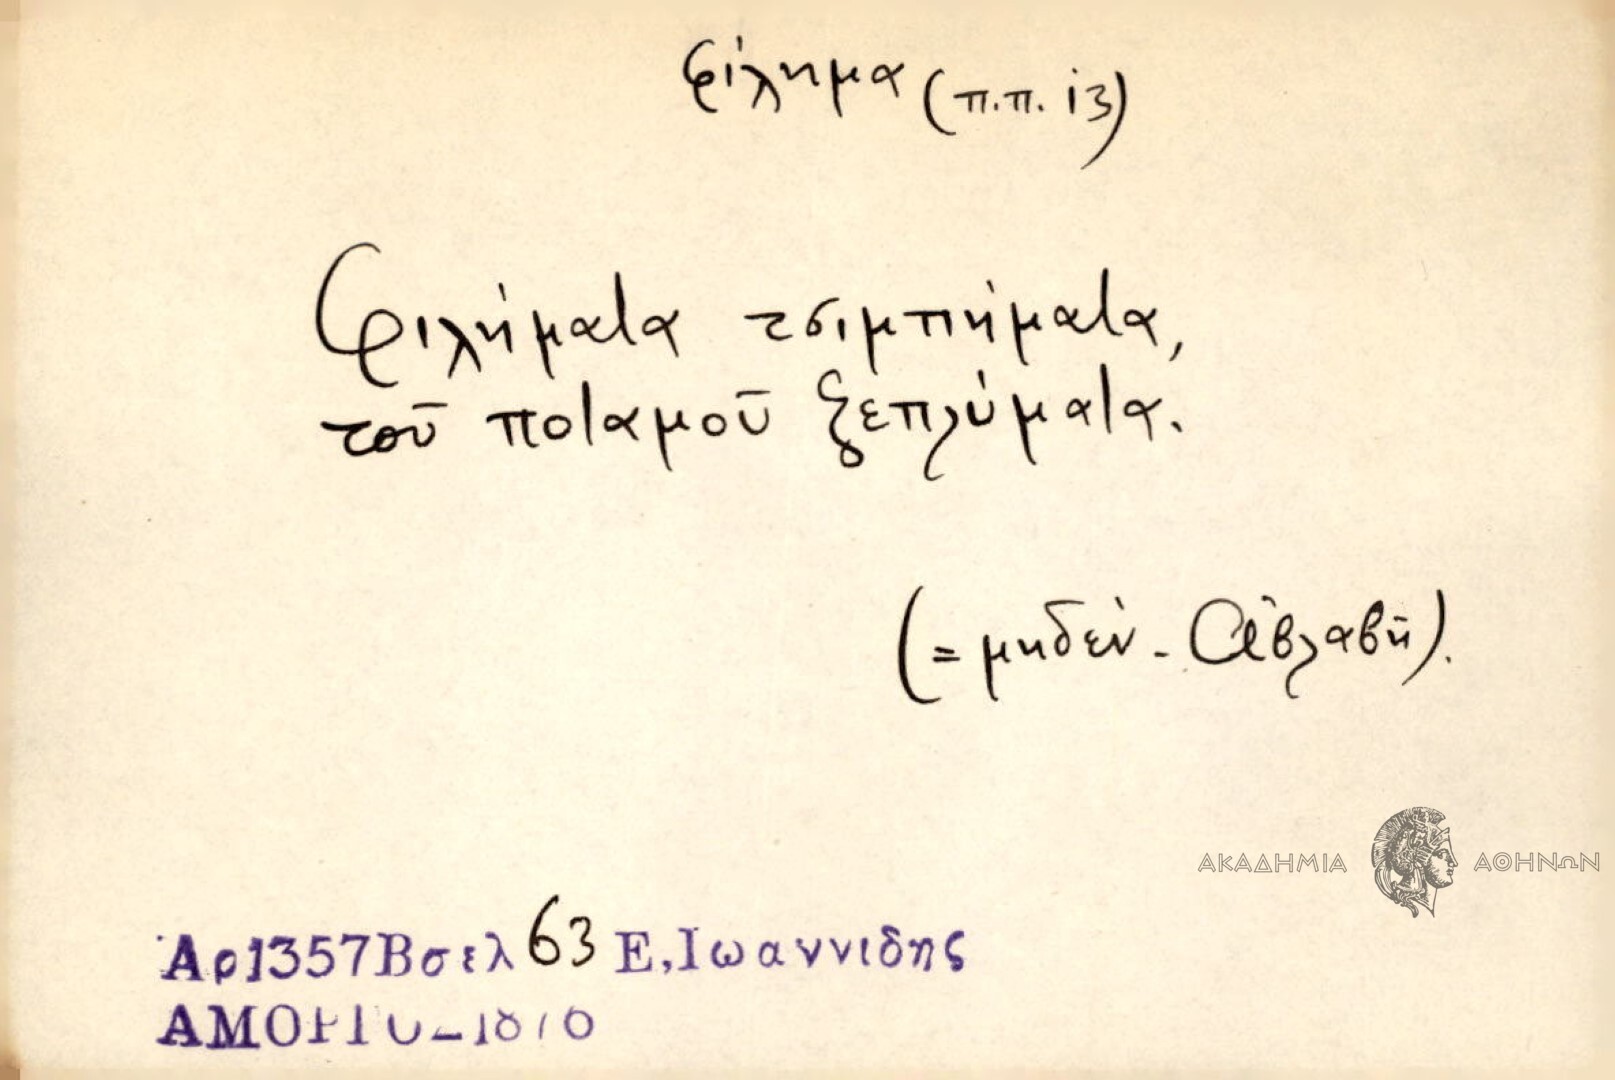 φίλημα (π.π. ιз)
Φιλήματα τσιμπήματα,
τοῦ ποταμοῦ ξεπλύματα.
(= μηδέν - Ἀβλαβῆ).
ΑΚΑΔΗΜΙΑ ΑΘΗΝΩΝ
Ἀρ1357Βσελ 63 Ε,Ιωαννιδης
ΑΜΟΡΓΟ_1876